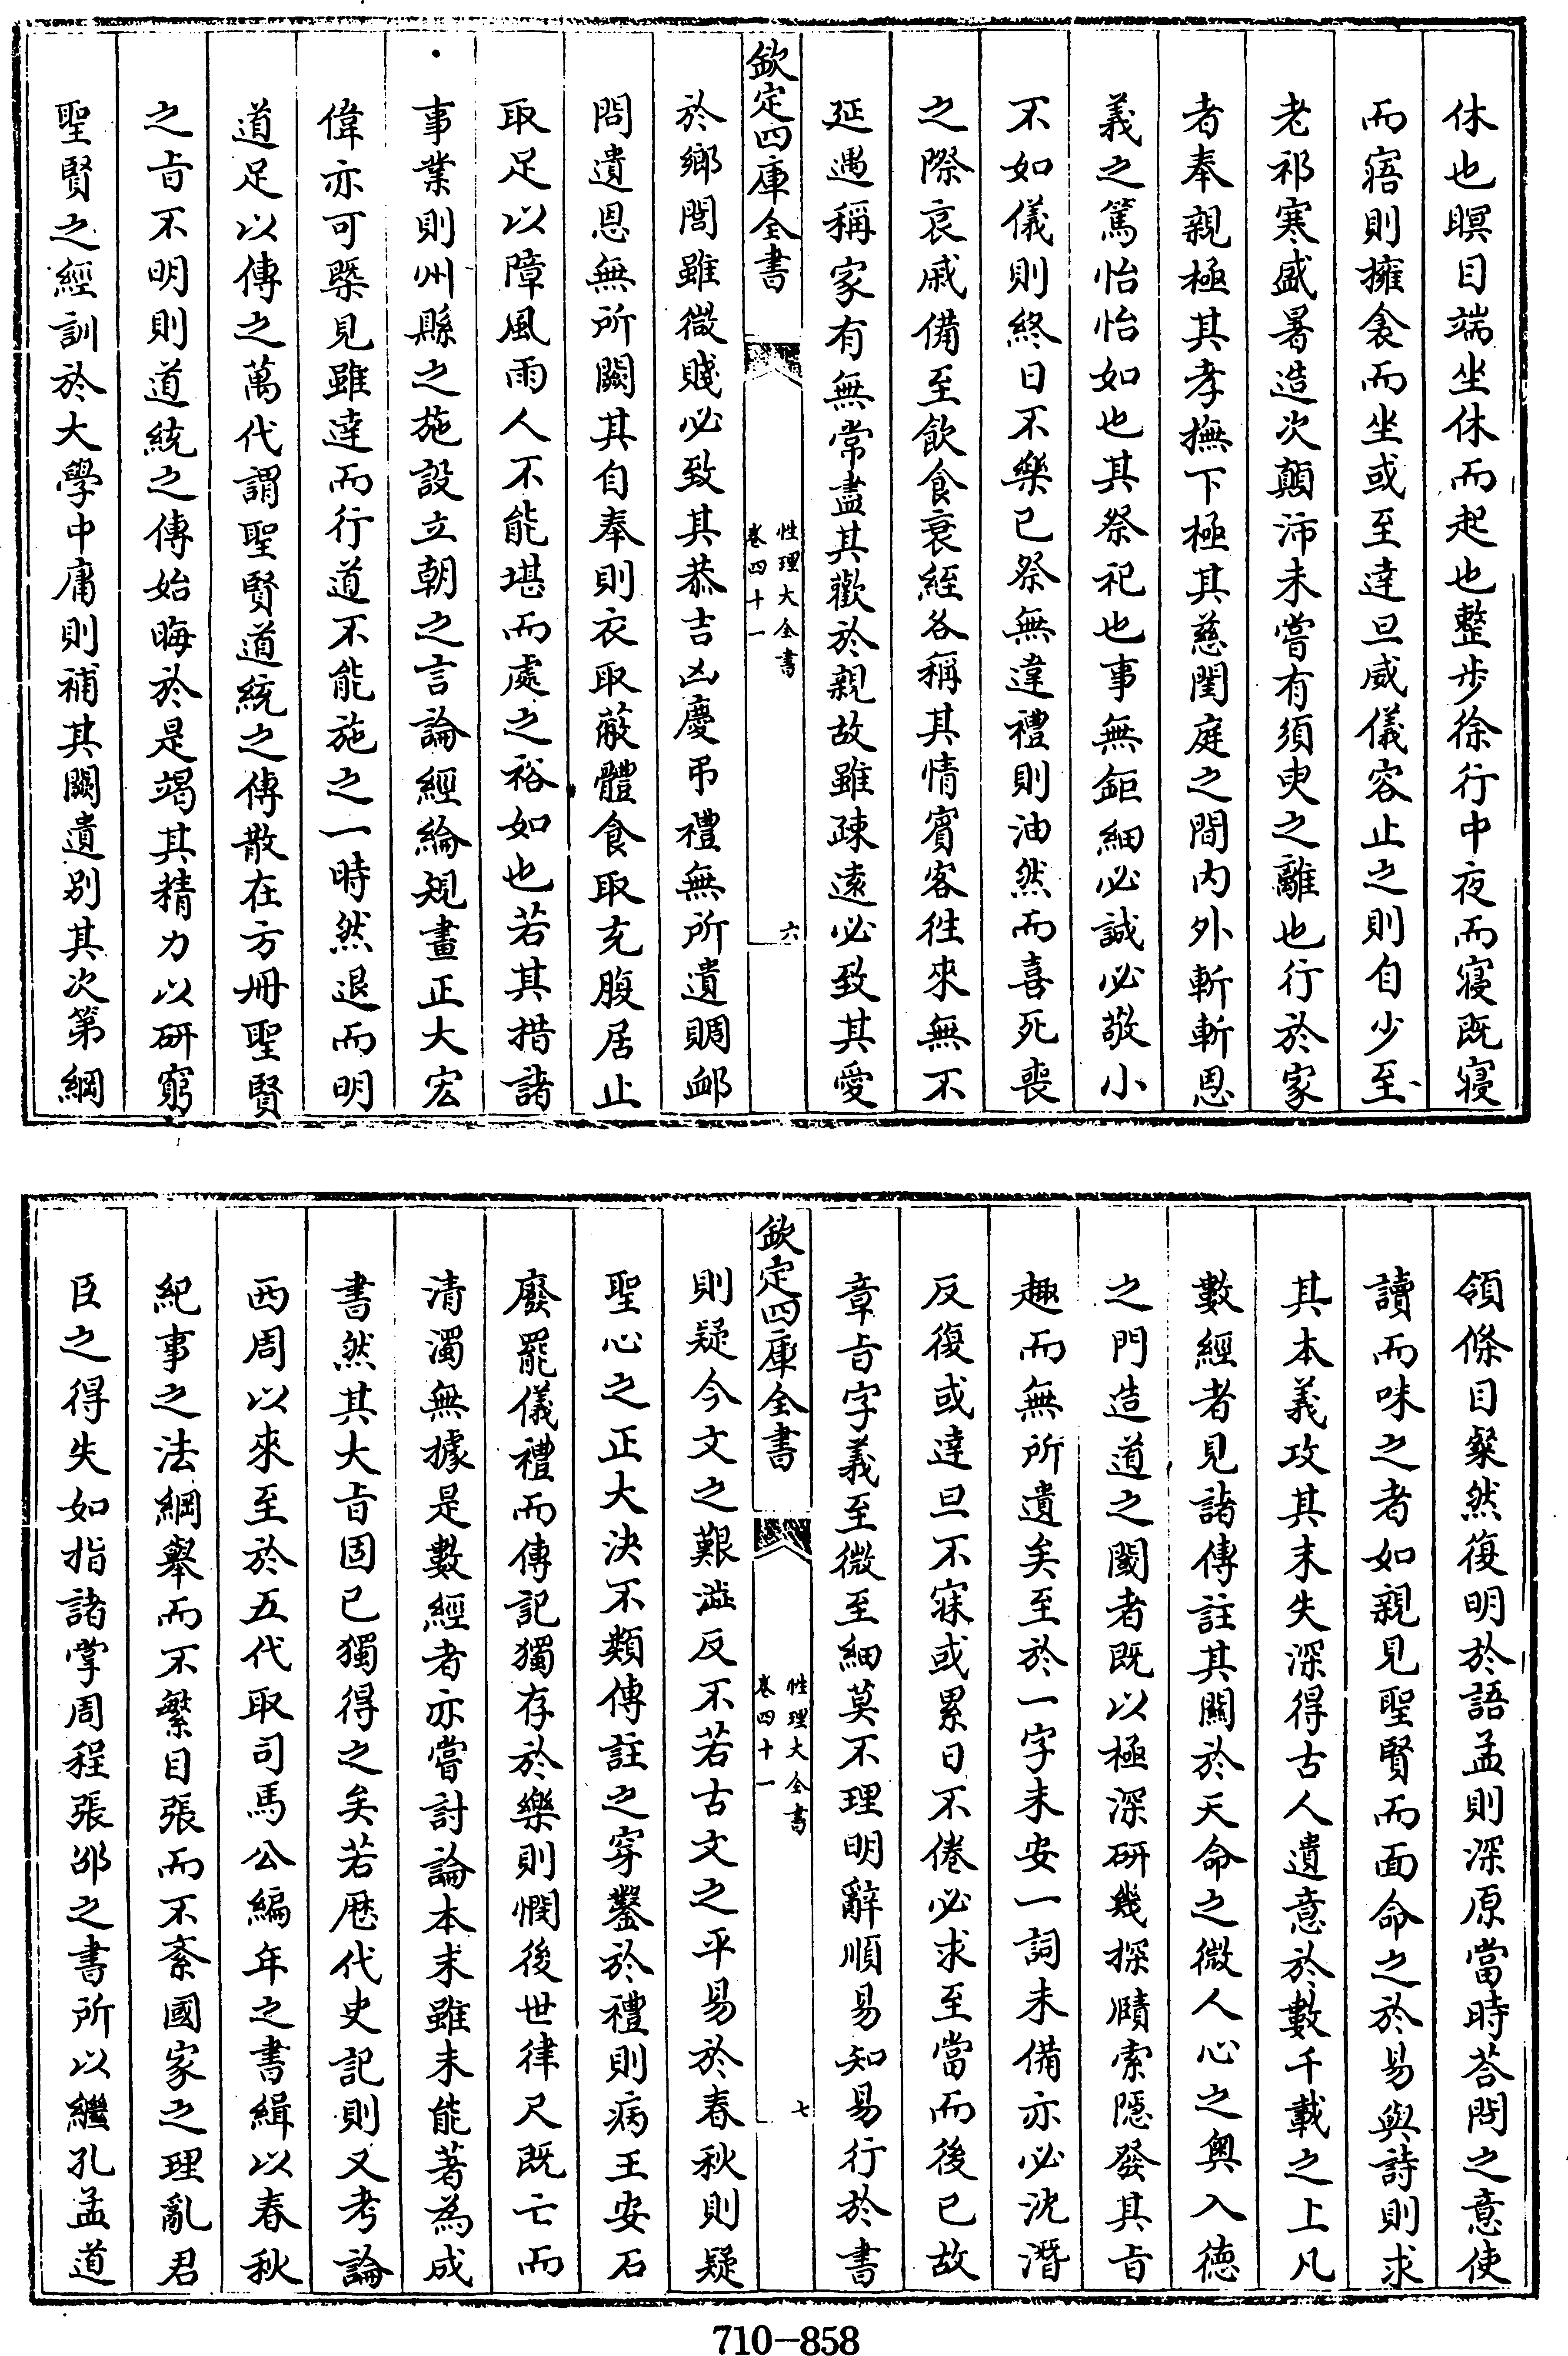 休也瞑目端坐休而起也整步徐行中夜而寢既寢
而寤則擁衾而坐或至達旦威儀容止之則自少至
老祁寒盛暑造次顛沛未嘗有須臾之離也行於家
者奉親極其孝撫下極其慈閨庭之間内外斬斬恩
義之篤怡怡如也其祭祀也事無鉅細必誠必敬小
不如儀則終日不樂已祭無違禮則油然而喜死喪
之際哀戚備至飲食衰絰各稱其情賓客徃來無不
延遇稱家有無常盡其歡於親故雖疎遠必致其愛
欽定四庫全書
性理大全書
卷四十一
六
於鄉閭雖微賤必致其恭吉凶慶弔禮無所遺賙䘏
問遺恩無所闕其自奉則衣取蔽體食取充腹居止
取足以障風雨人不能堪而處之裕如也若其措諸
事業則州縣之施設立朝之言論經綸規畫正大宏
偉亦可槩見雖達而行道不能施之一時然退而明
道足以傳之萬代謂聖賢道統之傳散在方冊聖賢
之㫖不明則道統之傳始晦於是竭其精力以研窮
聖賢之經訓於大學中庸則補其闕遺别其次第綱
領條目粲然復明於語孟則深原當時荅問之意使
讀而味之者如親見聖賢而面命之於易與詩則求
其本義攻其末失深得古人遺意於數千載之上凡
數經者見諸傳註其關於天命之微人心之奥入徳
之門造道之閾者既以極深研幾探賾索隱發其㫖
趣而無所遺矣至於一字未安一詞未備亦必沈潛
反復或達旦不寐或累日不倦必求至當而後已故
章㫖字義至微至細莫不理明辭順易知易行於書
欽定四庫全書
性理大全書
卷四十一
七
則疑今文之艱澁反不若古文之平易於春秋則疑
聖心之正大決不類傳註之穿鑿於禮則病王安石
廢罷儀禮而傳記獨存於樂則憫後世律尺既亡而
清濁無據是數經者亦嘗討論本末雖未能著為成
書然其大㫖固已獨得之矣若歴代史記則又考論
西周以來至於五代取司馬公編年之書緝以春秋
紀事之法綱舉而不繁目張而不紊國家之理亂君
臣之得失如指諸掌周程張邵之書所以繼孔孟道
710-858